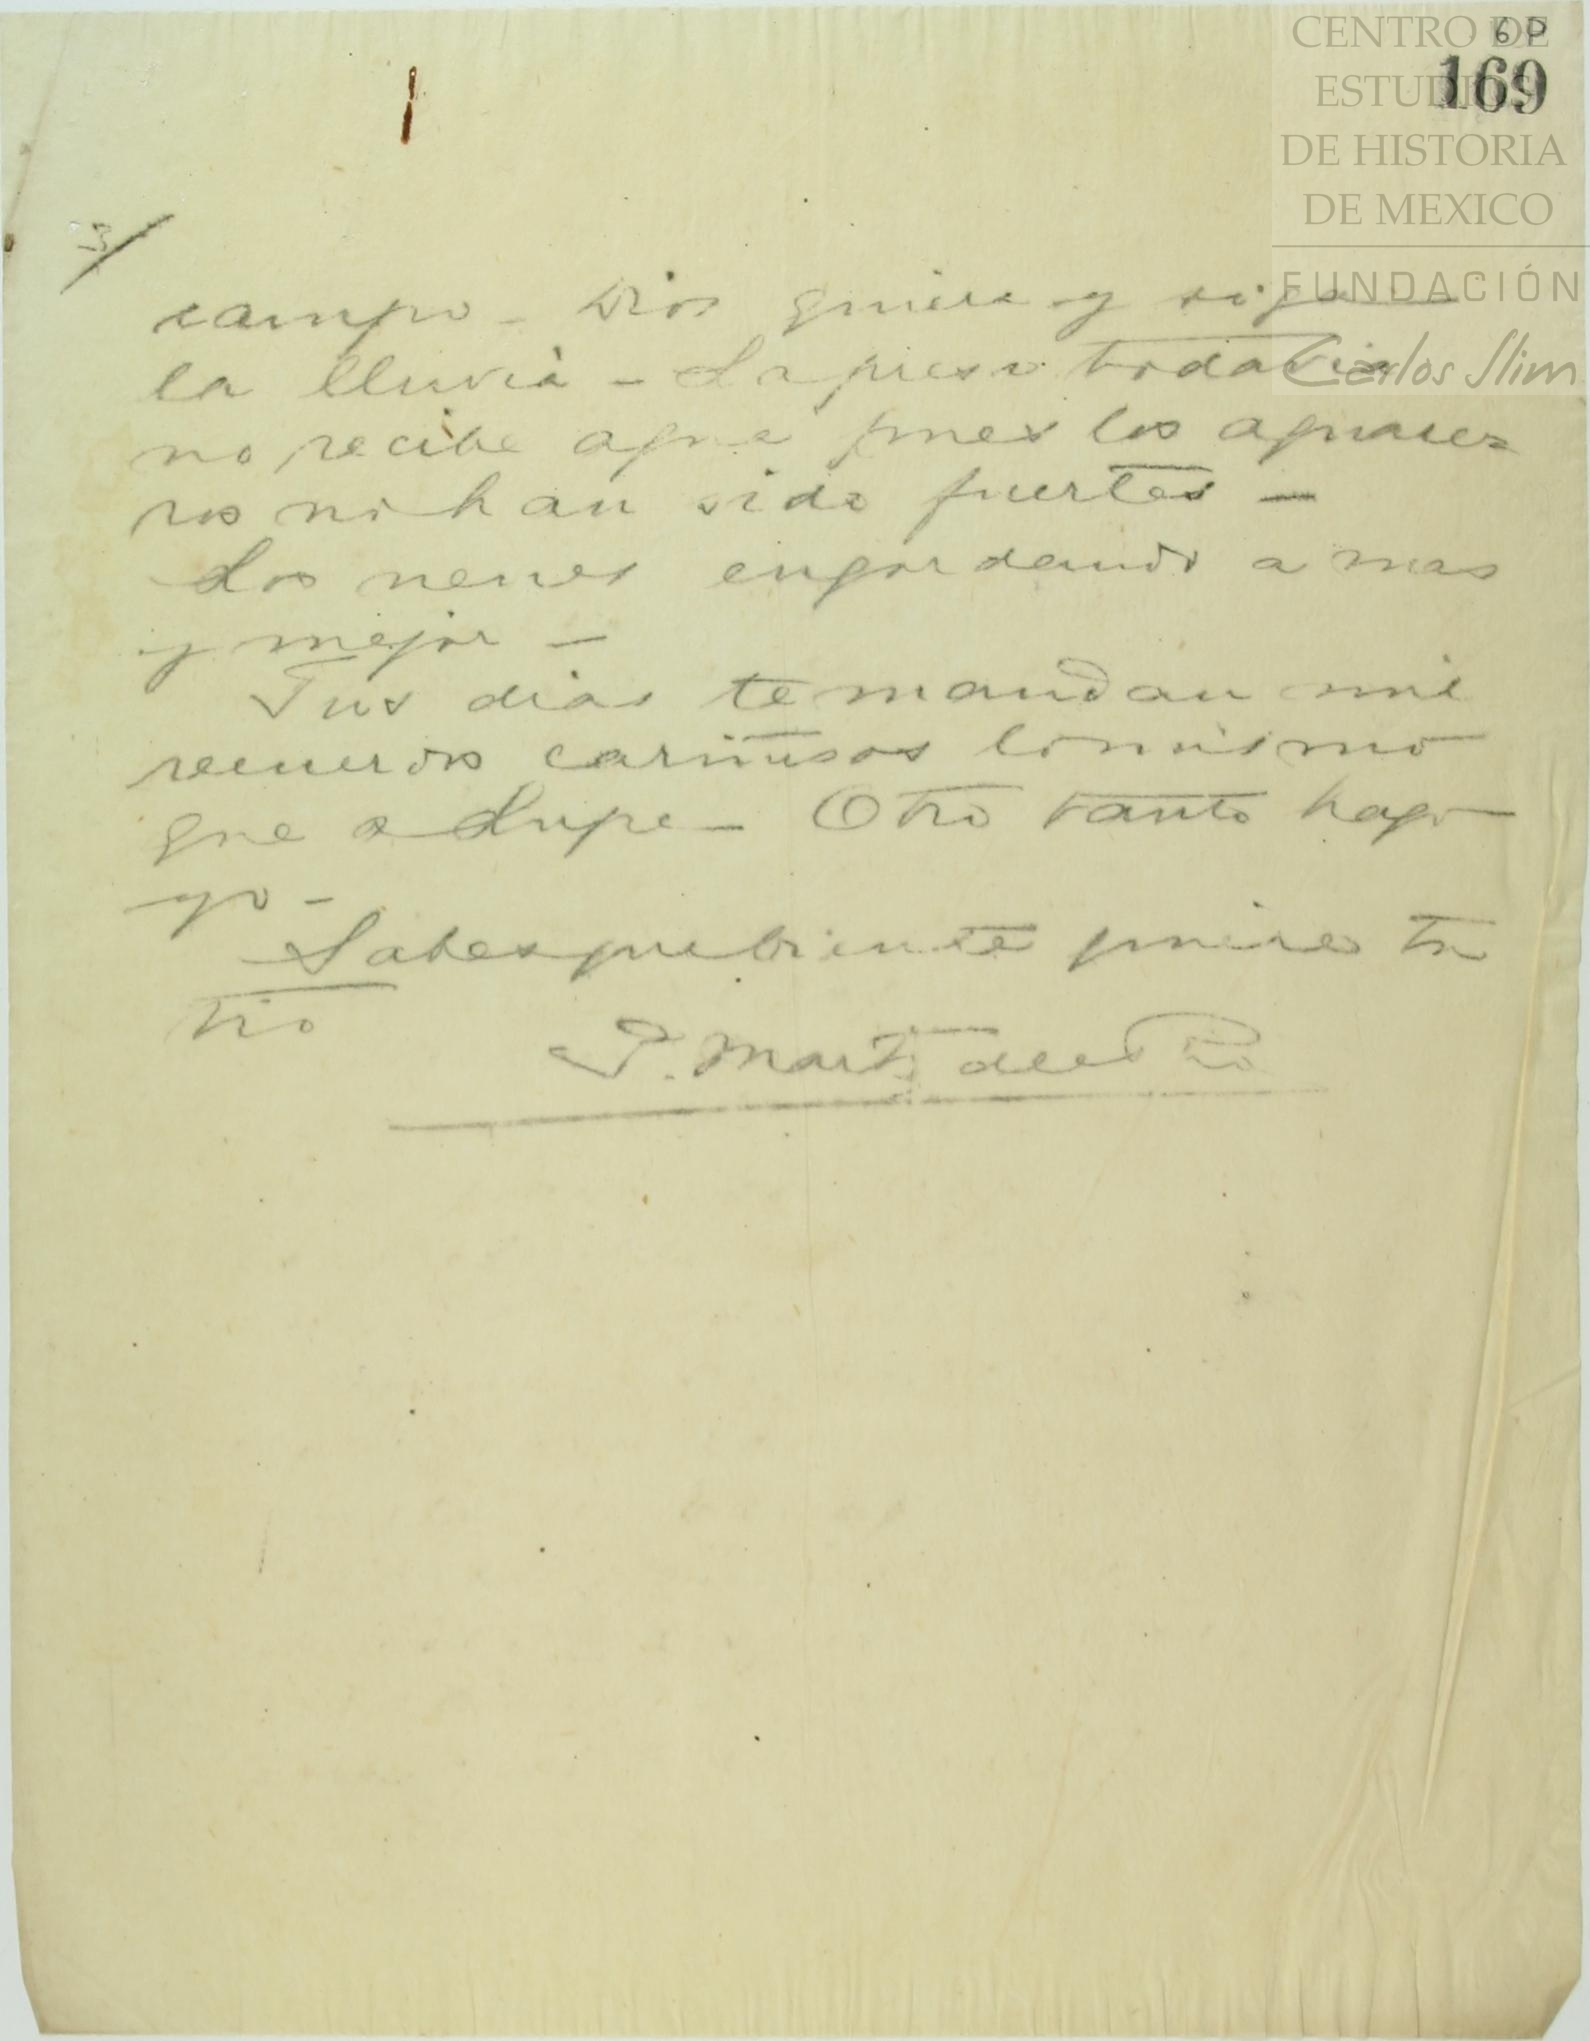 6 P
169
CENTRO DE
ESTUDIOS
DE HISTORIA
DE MEXICO
FUNDACIÓN
Carlos Slim
3/
campo - Dios quiera y siga
la lluvia - La presa todavia
no recibe agua pues los aguace=
ros no han sido fuertes -
Los nenes engordando a mas
y mejor -
Tus tias te mandan mil
recuerdos cariñosos lo mismo
que a Lupe - Otro tanto hago
yo -
Sabes que bien te quiere tu
tio
P. Martz del Rio